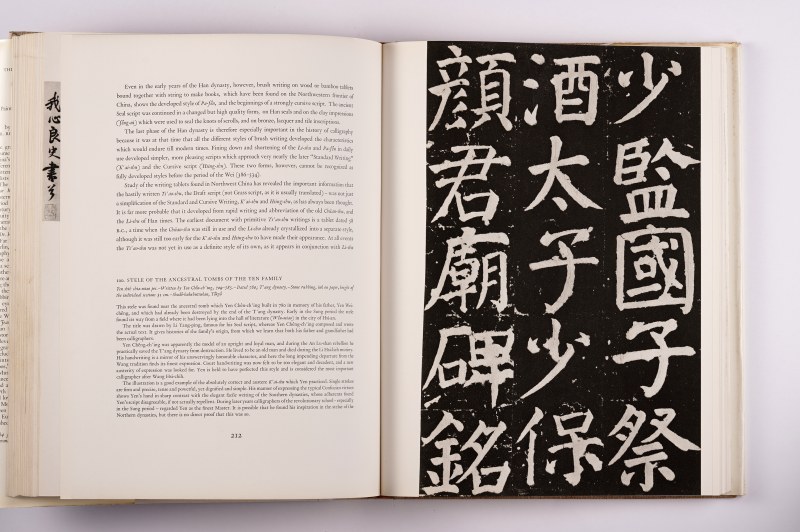 Even in the early years of the Han dynasty, however, brush writing on wood or bamboo tablets
bound together with string to make books, which have been found on the Northwestern frontier of
China, shows the developed style of Pa-fên, and the beginnings of a strongly cursive script. The ancient
Seal script was continued in a changed but high quality form, on Han seals and on clay impressions
which were used to seal the knots of scrolls, and on bronze, lacquer and tile inscriptions.
The last phase of the Han dynasty is therefore especially important in the history of calligraphy
because it was at that time that all the different styles of brush writing developed the characteristics
which would endure till modern times. Fining down and shortening of the Li-shu and Pa-fên in daily
use developed simpler, more pleasing scripts which approach very nearly the later "Standard Writing"
(K'ai-shu) and the Cursive script (Hsing-shu). These two forms, however, cannot be recognized as
fully developed styles before the period of the Wei (386-534).
Study of the writing tablets found in Northwest China has revealed the important information that
the hastily written Ts'ao-shu, the Draft script (not Grass script, as it is usually translated) – was not just
a simplification of the Standard and Cursive Writing, K'ai-shu and Hsing-shu, as has always been thought.
It is far more probable that it developed from rapid writing and abbreviation of the old Chüan-shu, and
the Li-shu of Han times. The earliest document with primitive Ts'ao-shu writings is a tablet dated
B.C., a time when the Chüan-shu was still in use and the Li-shu already crystallized into a separate style,
although it was still too early for the K'ai-shu and Hsing-shu to have made their appearance. At all events
the Ts'ao-shu was not yet in use as a definite style of its own, as it appears in conjunction with Li-shu
100. STELE OF THE ANCESTRAL TOMBS OF THE YEN FAMILY
This stele was found near the ancestral tomb which Yen Chên-ch'ing built in 780 in memory of his father, Yen Wei-
chêng, and which had already been destroyed by the end of the T'ang dynasty. Early in the Sung period the stele
found its way from a field where it had been lying into the hall of literature (Wên-miao) in the city of Hsian.
The title was drawn by Li Yang-ping, famous for his Seal script, whereas Yen Chêng-ch'ing composed and wrote
the actual text. It gives histories of the family's origin, from which we learn that both his father and grandfather had
been calligraphers.
Yen Chên-ch'ing was apparently the model of an upright and loyal man, and during the An Lu-shan rebellion he
practically saved the T'ang dynasty from destruction. He lived to be an old man and died during the Li Hsi-lieh revolt.
His handwriting is a mirror of his unswervingly honorable character, and here the Sung impending departure from the
Wang tradition finds its finest expression. Court handwriting was now felt to be too elegant and decadent, and a new
austerity of expression was looked for. Yen is held to have perfected this style and is considered the most important
calligrapher after Wang Hsi-chih.
The illustration is a good example of the absolutely correct and austere K'ai-shu which Yen practiced. Single strokes
are firm and precise, tense and powerful, yet dignified and simple.
212
少監國子祭
酒太子少保
顏君廟碑銘